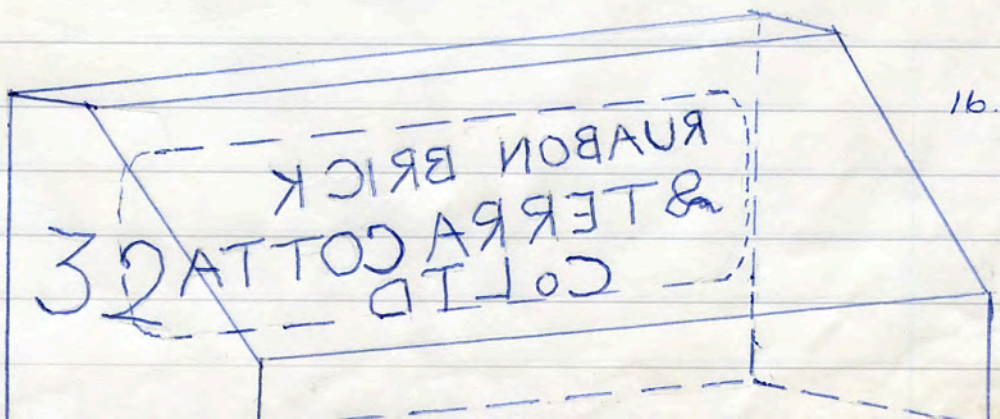 16.
RUABON BRICK
& TERRA COTTA
CoLTD
32